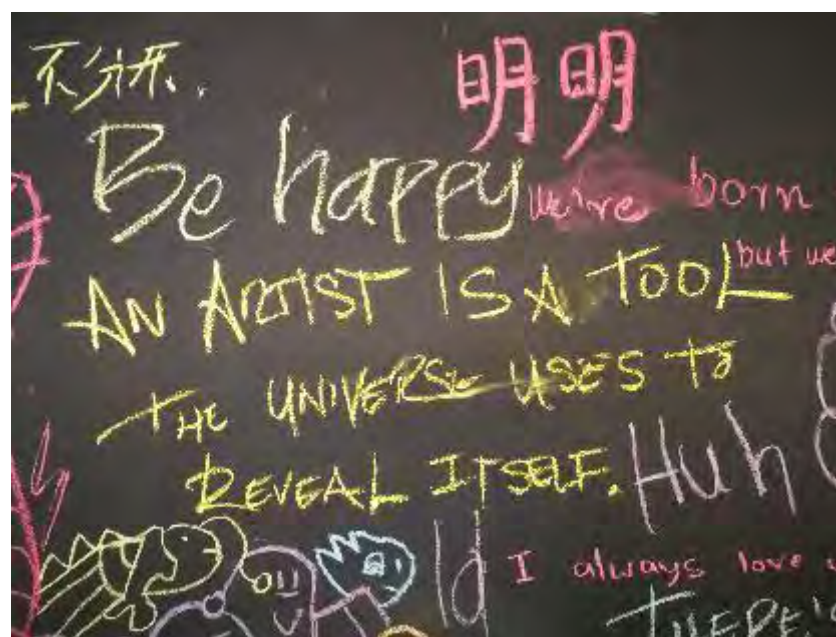 不分开.
明明
Be happy
we're born
but we
AN ARTIST IS A TOOL
THE UNIVERSE USES TO
REVEAL ITSELF.
Huh
I always love
THERE'